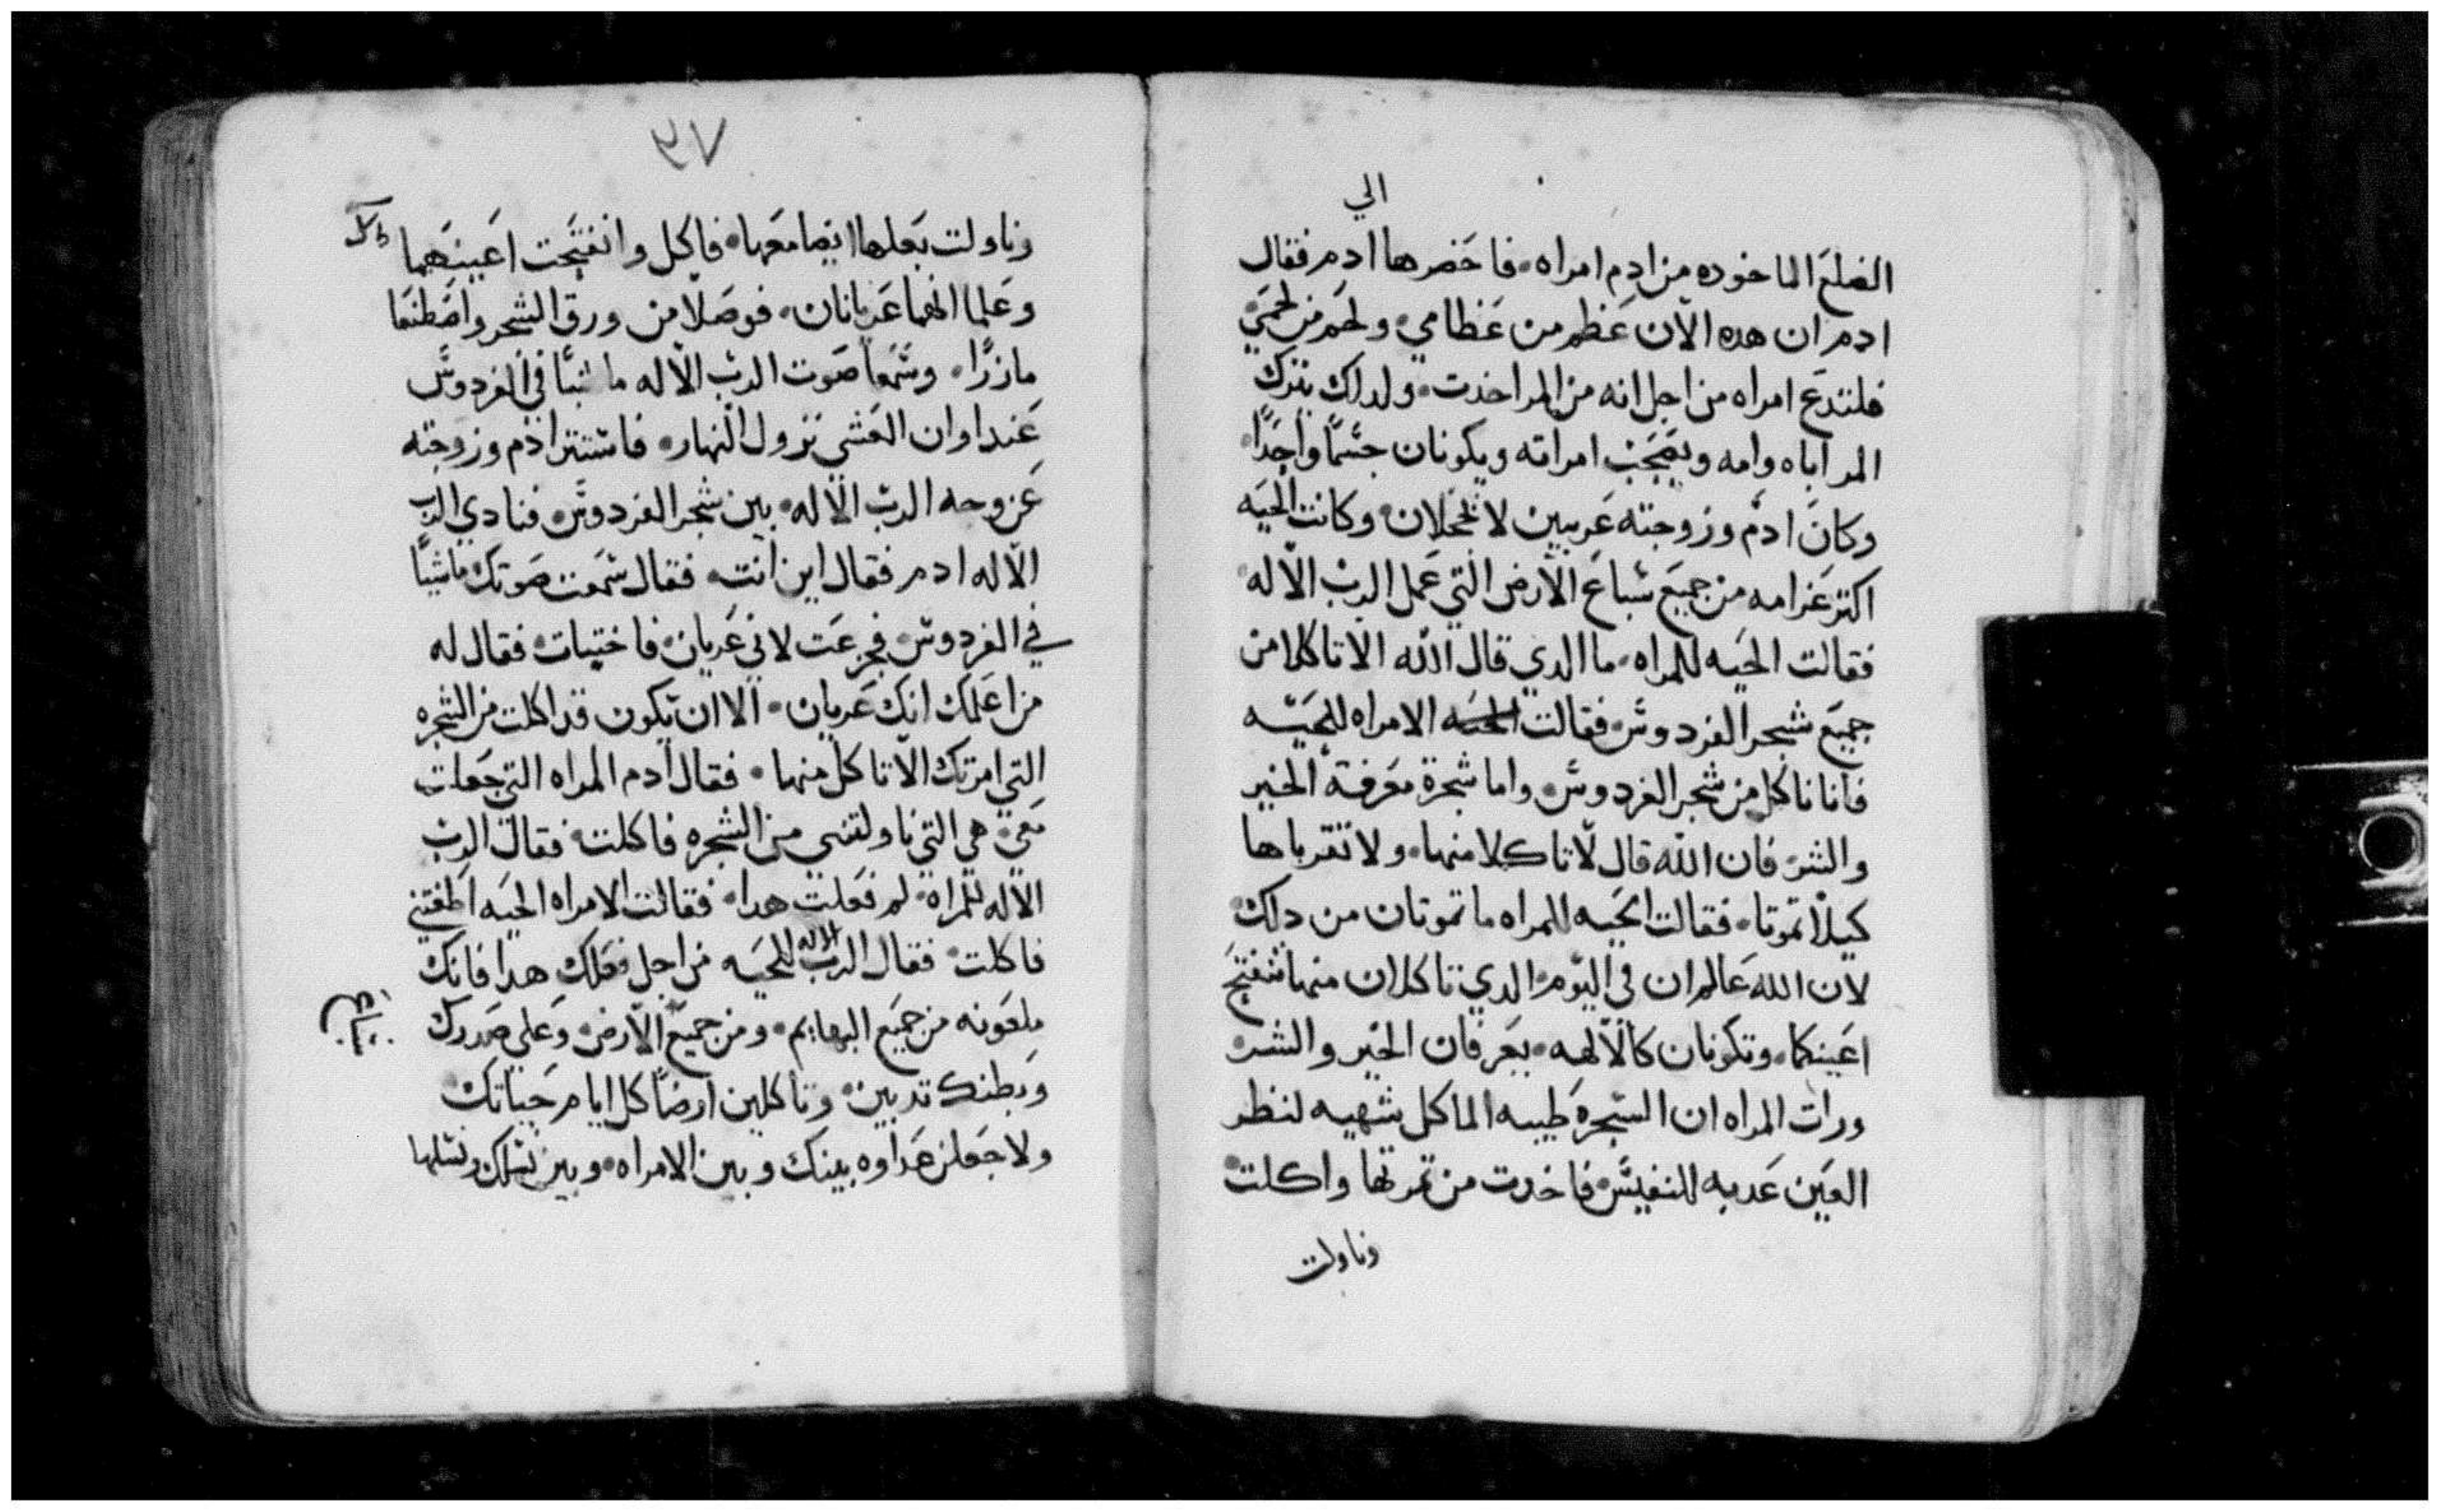 الي
الضلع الماخوده من ادم امراه. فاحضرها ادم فقال
ادم ان هده الآن عظم من عظامي. ولحم من لحمي
فلتدع امراه من اجل انه من المر اخدت. ولدلك يترك
المر اباه وامه ويصحب امراته ويكونان جسما واحدا.
وكان ادم وزوجته عريين لا يخجلان. وكانت الحيه
اكتر غرامه من جميع سباع الآرض التي عمل الرب الآله
فقالت الحيه للمراه. ما الدي قال الله الا تاكلا من
جميع شجر الفردوس. فقالت الحيه الامراه للحيه
فانا ناكل من شجر الفردوس. واما شجرة معرفة الخير
والشر فان الله قال لآ تاكلا منها. ولا تقرباها
كيلآ تموتا. فقالت الحيه للمراه ما تموتان من دلك
لان الله عالم ان في اليوم الدي تاكلان منها تنفتح
اعينكما. وتكونان كالآلهه. يعرفان الخير والشر
ورات المراه ان الشجرة طيبه الماكل شهيه لنظر
العين عدبه للنفيس. فاخدت من تمرتها واكلت
وناولت
٣٧
وناولت بعلها ايضا معها. فاكل وانفتحت اعينهما
وعلما انهما عريانان. فوصلا من ورق الشجر واصطنعا
مازرا. وسمعا صوت الرب الآله ماشيا في الفردوس
عند اوان العشي نزول النهار. فاستتر ادم وزوجته
عن وجه الرب الآله. بين شجر الفردوس. فنادي الرب
الآله ادم فقال اين انت. فقال سمعت صوتك ماشيا
في الفردوس فجزعت لاني عريان. فاختبات. فقال له
من اعلمك انك عريان. الا ان تكون قد اكلت من الشجره
التي امرتك الآ تاكل منها. فقال ادم المراه التي جعلت
معي هي التي ناولتني من الشجره فاكلت. فقال الرب
الآله للمراه. لم فعلت هدا. فقالت الامراه الحيه اطغتني
فاكلت. فقال الرب الاله للحيه من اجل فعلك هدا فانك
ملعونه من جميع البهايم. ومن جميع الآرض. وعلي صدرك
وبطنك تدبين. وتاكلين ارضا كل ايام حياتك
ولاجعلن عداوه بينك وبين الامراه. وبين نسلك ونسلها